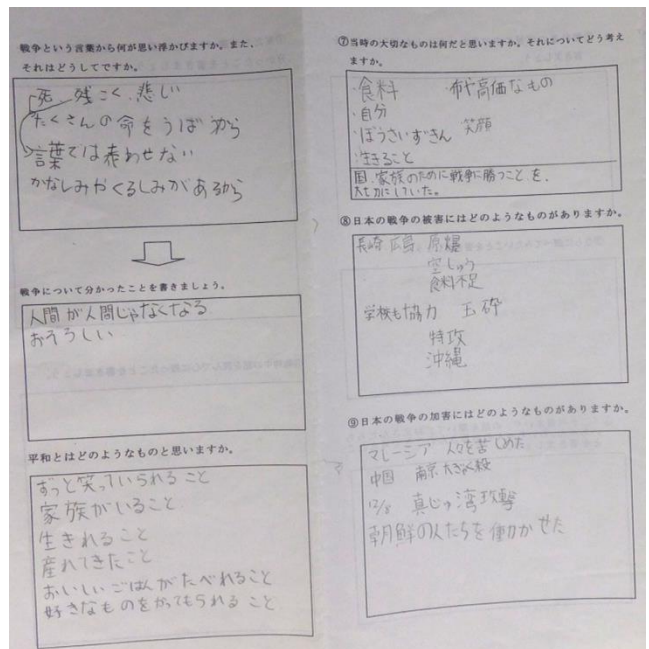 戦争という言葉から何が思い浮かびますか。また、
それはどうしてですか。
死 残こく 悲しい
たくさんの命をうばうから
言葉では表わせない
かなしみやくるしみがあるから
戦争について分かったことを書きましょう。
人間が人間じゃなくなる
おそろしい
平和とはどのようなものと思いますか。
ずっと笑っていられること
家族がいること
生きれること
産れてきたこと
おいしいごはんがたべれること
好きなものをかってもられること
⑦当時の大切なものは何だと思いますか。それについてどう考え
ますか。
・食料 ・布や高価なもの
・自分
・ぼうさいずきん 笑顔
・生きること
国、家族のために戦争に勝つこと を、
大切にしていた。
⑧日本の戦争の被害にはどのようなものがありますか。
長崎 広島 原爆
空しゅう
食料不足
学校も協力 玉砕
特攻
沖縄
⑨日本の戦争の加害にはどのようなものがありますか。
マレーシア 人々を苦しめた
中国 南京大ぎゃく殺
12/8 真じゅ湾攻撃
朝鮮の人たちを働かせた